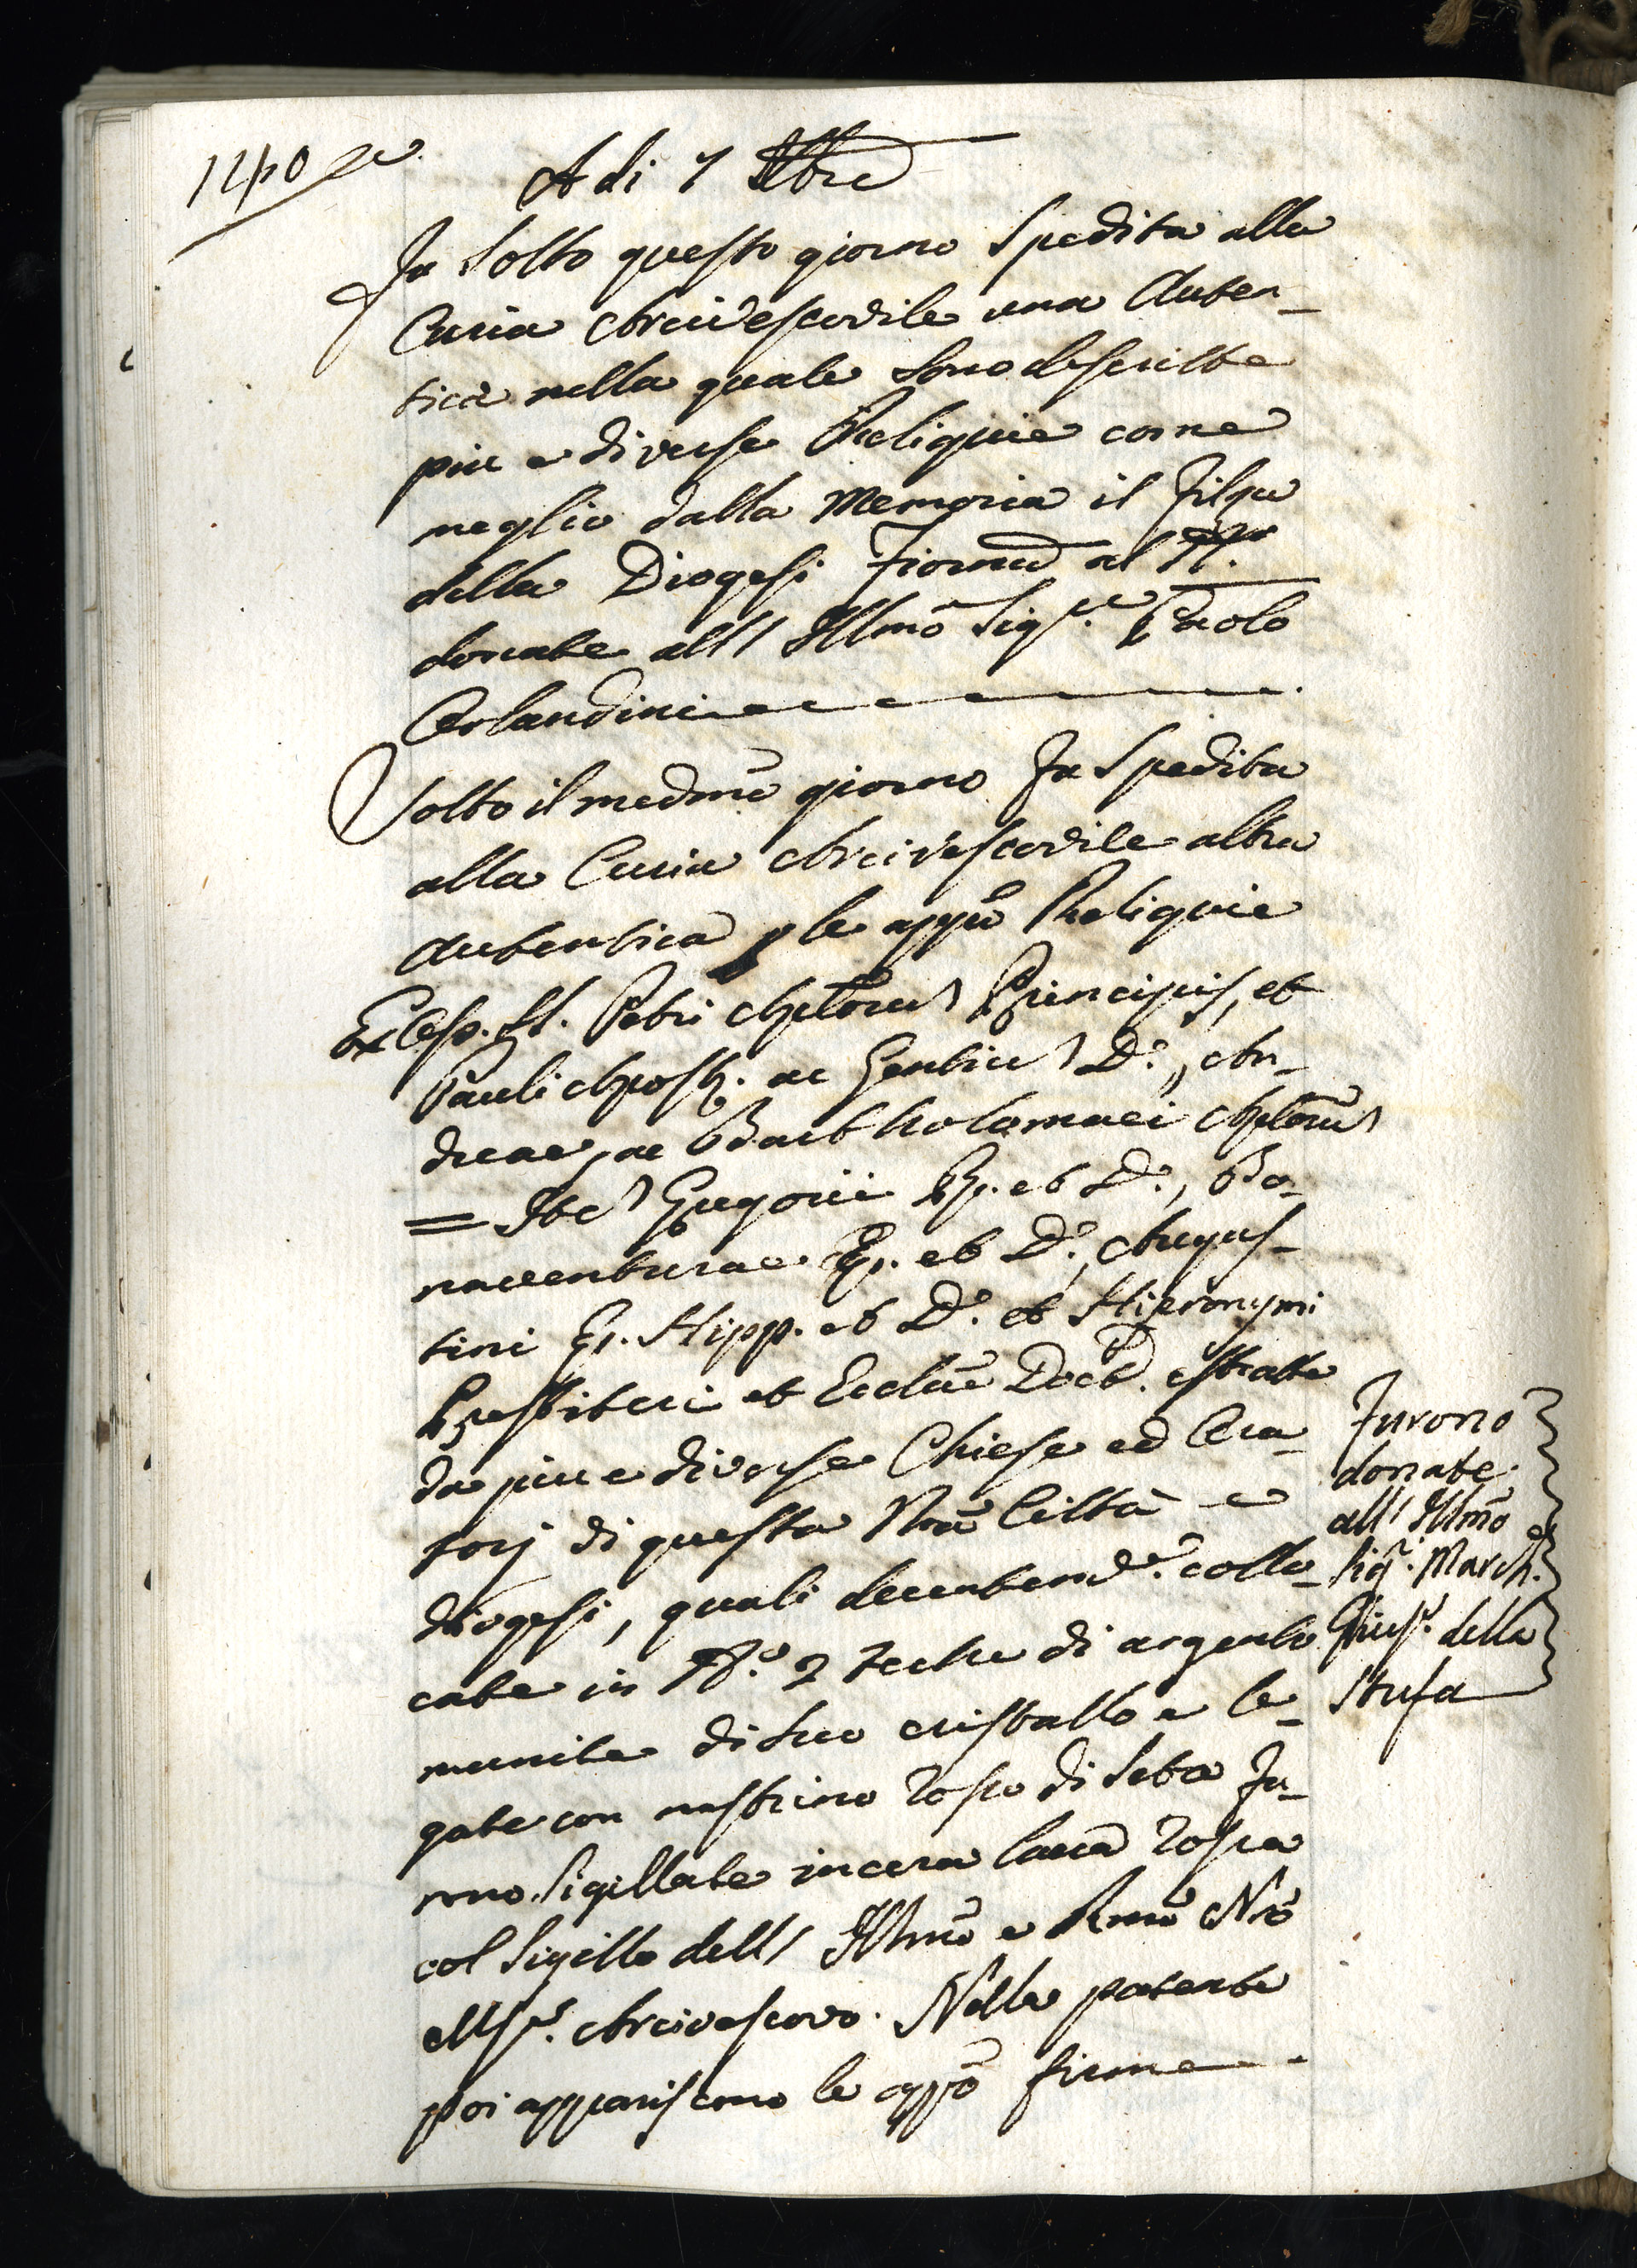 1240
A di 7 Xbre
Fu sotto questo giorno spedita alla
Curia Arcivescovile una Auten-
tica nella quale sono descritte
piu e diverse Reliquie come
meglio dalla Memoria il Filza
della Diogesi Fiornã al N.
donate all' Illmõ Sigr.e Paolo
Orlandini
Sotto il medmõ giorno fu spedita
alla Curia Arcivescovile altra
Autentica p le appiẽ Reliquie
Ex Ossp. SS. Petri Aplõrũ Principis, et
Pauli Apostli. ac Gentiũ D., An-
dreae, ac Bartholomaei Aplõrũ
= Itẽ Gregorii Pp. et D., Bo-
naventurae Ep. et D., Augus-
tini Ep. Hipp. et D. et Hieronymi
Presbiteri et Ecclãe Doct. estratte
da piu e diverse Chiese ed Ora-
torj di questa Nrã Città e
Diogesi, quali decentemte. collo-
cate in No. 2 Teche di argento
munite di suo cristallo e le-
gate con nastrino rosso di seta fu-
rono sigillate in cera lacca rossa
col sigillo dell' Illmõ e Rmõ Nrõ
Msr. Arcivescovo. Nella patente
poi appariscono le appiẽ firme
Furono
donate
all' Illmõ
Sigr. March.e
Gius.e della
Stufa